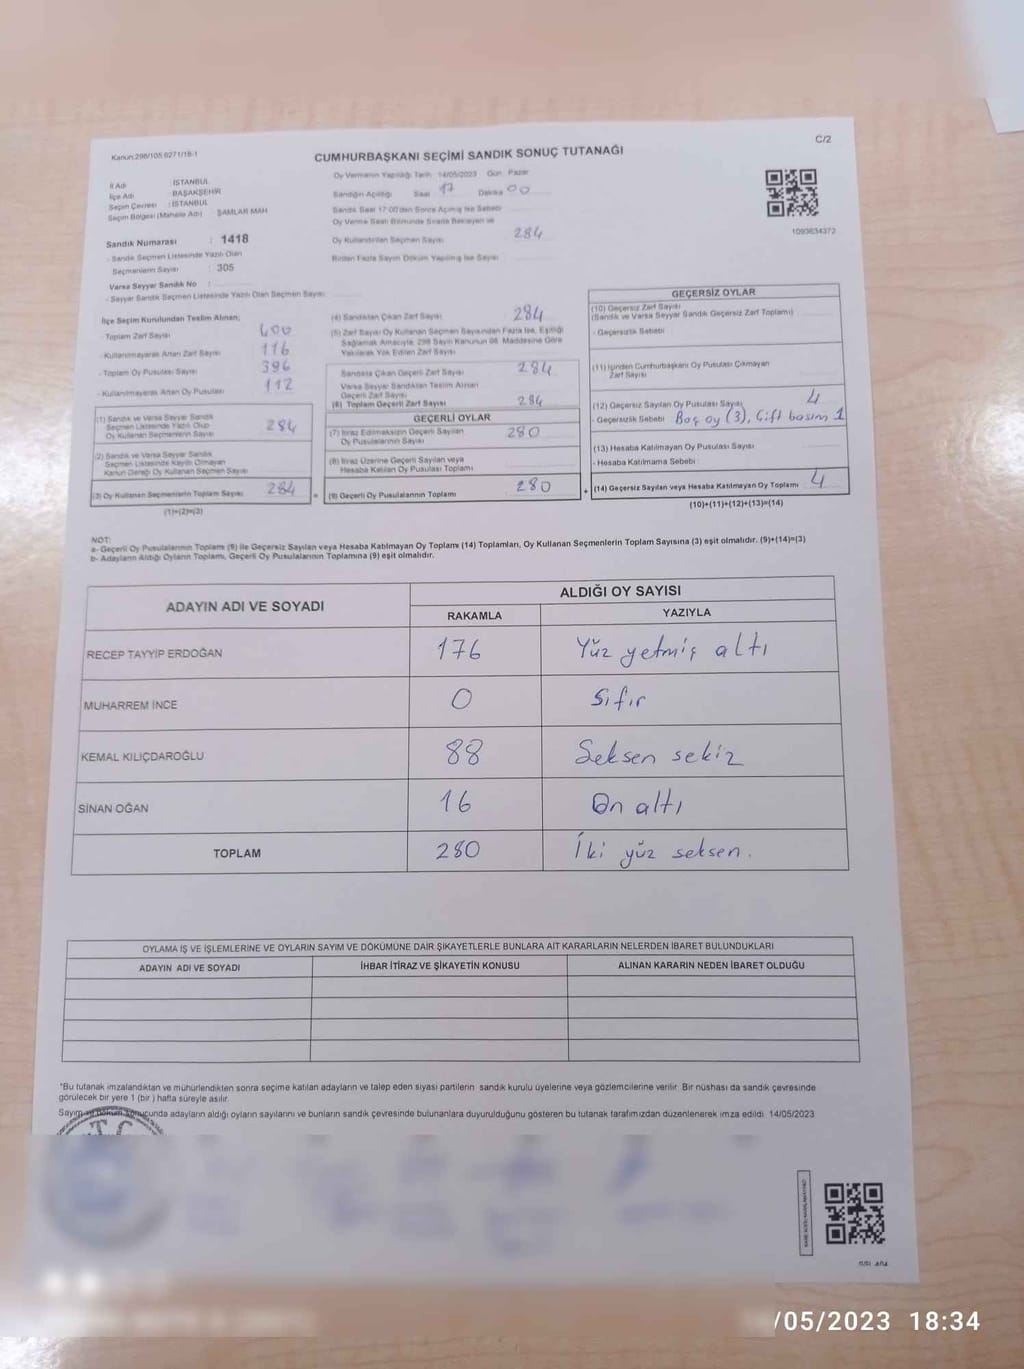 Kanun:298/105 6271/18-1
C/2
CUMHURBAŞKANI SEÇİMİ SANDIK SONUÇ TUTANAĞI
İl Adı : İSTANBUL
İlçe Adı : BAŞAKŞEHİR
Seçim Çevresi : İSTANBUL
Seçim Bölgesi (Mahalle Adı) ŞAMLAR MAH
Sandık Numarası : 1418
- Sandık Seçmen Listesinde Yazılı Olan
Seçmenlerin Sayısı : 305
Varsa Seyyar Sandık No :
- Seyyar Sandık Seçmen Listesinde Yazılı Olan Seçmen Sayısı
Oy Vermenin Yapıldığı Tarih 14/05/2023 Gün Pazar
Sandığın Açıldığı Saat 17 Dakika 00
Sandık Saat 17:00'den Sonra Açılmış İse Sebebi
Oy Verme Saati Bitiminde Sırada Bekleyen ve
Oy Kullandırılan Seçmen Sayısı 284
Birden Fazla Sayım Döküm Yapılmış İse Sayısı
1093634372
İlçe Seçim Kurulundan Teslim Alınan;
- Toplam Zarf Sayısı 400
- Kullanılmayarak Artan Zarf Sayısı 116
- Toplam Oy Pusulası Sayısı 396
- Kullanılmayarak Artan Oy Pusulası 112
(1) Sandık ve Varsa Seyyar Sandık
Seçmen Listesinde Yazılı Olup
Oy Kullanan Seçmenlerin Sayısı 284
(2) Sandık ve Varsa Seyyar Sandık
Seçmen Listesinde Kayıtlı Olmayan
Kanun Gereği Oy Kullanan Seçmen Sayısı
(3) Oy Kullanan Seçmenlerin Toplam Sayısı 284
(1)+(2)=(3)
(4) Sandıktan Çıkan Zarf Sayısı 284
(5) Zarf Sayısı Oy Kullanan Seçmen Sayısından Fazla İse, Eşitliği
Sağlamak Amacıyla, 298 Sayılı Kanunun 98. Maddesine Göre
Yakılarak Yok Edilen Zarf Sayısı
Sandıkta Çıkan Geçerli Zarf Sayısı 284
Varsa Seyyar Sandıktan Teslim Alınan
Geçerli Zarf Sayısı
(6) Toplam Geçerli Zarf Sayısı 284
GEÇERLİ OYLAR
(7) İtiraz Edilmeksizin Geçerli Sayılan
Oy Pusulalarının Sayısı 280
(8) İtiraz Üzerine Geçerli Sayılan veya
Hesaba Katılan Oy Pusulası Toplamı
= (9) Geçerli Oy Pusulalarının Toplamı 280
GEÇERSİZ OYLAR
(10) Geçersiz Zarf Sayısı
(Sandık ve Varsa Seyyar Sandık Geçersiz Zarf Toplamı)
- Geçersizlik Sebebi
(11) İçinden Cumhurbaşkanı Oy Pusulası Çıkmayan
Zarf Sayısı
(12) Geçersiz Sayılan Oy Pusulası Sayısı 4
- Geçersizlik Sebebi Boş oy (3), Çift basım 1
(13) Hesaba Katılmayan Oy Pusulası Sayısı
- Hesaba Katılmama Sebebi
+ (14) Geçersiz Sayılan veya Hesaba Katılmayan Oy Toplamı 4
(10)+(11)+(12)+(13)=(14)
NOT:
a- Geçerli Oy Pusulalarının Toplamı (9) ile Geçersiz Sayılan veya Hesaba Katılmayan Oy Toplamı (14) Toplamları, Oy Kullanan Seçmenlerin Toplam Sayısına (3) eşit olmalıdır. (9)+(14)=(3)
b- Adayların Aldığı Oyların Toplamı, Geçerli Oy Pusulalarının Toplamına (9) eşit olmalıdır.
ADAYIN ADI VE SOYADI
ALDIĞI OY SAYISI
RAKAMLA YAZIYLA
RECEP TAYYİP ERDOĞAN 176 Yüz yetmiş altı
MUHARREM İNCE 0 Sıfır
KEMAL KILIÇDAROĞLU 88 Seksen sekiz
SİNAN OĞAN 16 On altı
TOPLAM 280 İki yüz seksen.
OYLAMA İŞ VE İŞLEMLERİNE VE OYLARIN SAYIM VE DÖKÜMÜNE DAİR ŞİKAYETLERLE BUNLARA AİT KARARLARIN NELERDEN İBARET BULUNDUKLARI
ADAYIN ADI VE SOYADI İHBAR İTİRAZ VE ŞİKAYETİN KONUSU ALINAN KARARIN NEDEN İBARET OLDUĞU
*Bu tutanak imzalandıktan ve mühürlendikten sonra seçime katılan adayların ve talep eden siyasi partilerin sandık kurulu üyelerine veya gözlemcilerine verilir. Bir nüshası da sandık çevresinde
görülecek bir yere 1 (bir ) hafta süreyle asılır.
Sayım ve döküm sonucunda adayların aldığı oyların sayılarını ve bunların sandık çevresinde bulunanlara duyurulduğunu gösteren bu tutanak tarafımızdan düzenlenerek imza edildi. 14/05/2023
T.C.
/05/2023 18:34